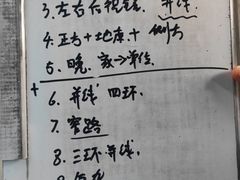 3. 左右后视镜、并线.
4. 正方+地库+侧方
5. 晚. 家→单位
+
6. 并线 四环.
7. 窄路
8. 三环并线.